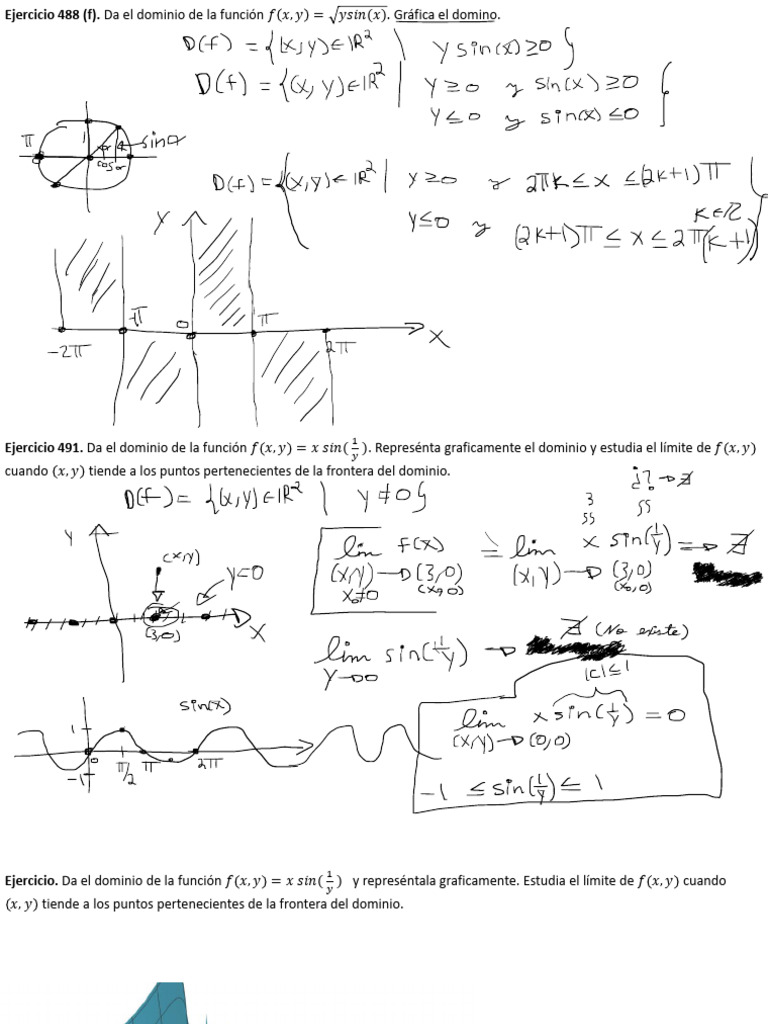 Ejercicio 488 (f). Da el dominio de la función f(x,y) = √ysin(x). Gráfica el domino.
D(f) = {(x,y) ∈ ℝ² | y sin(x) ≥ 0}
D(f) = {(x,y) ∈ ℝ² | y ≥ 0 y sin(x) ≥ 0
y ≤ 0 y sin(x) ≤ 0}
π 1 α sin α
cos α
D(f) = {(x,y) ∈ ℝ² | y ≥ 0 y 2πk ≤ x ≤ (2k+1)π
k ∈ ℤ
y ≤ 0 y (2k+1)π ≤ x ≤ 2π(k+1)}
Y
-2π -π 0 π 2π X
Ejercicio 491. Da el dominio de la función f(x,y) = x sin(1/y). Represénta graficamente el dominio y estudia el límite de f(x,y)
cuando (x,y) tiende a los puntos pertenecientes de la frontera del dominio.
D(f) = {(x,y) ∈ ℝ² | y ≠ 0}
¿? → ∄
3 SS
SS
Y
(x,y) y=0
(3,0) X
lim f(x) = lim x sin(1/y) ⇒ ∄
(x,y)→(3,0) (x,y)→(3,0)
x₀≠0 (x₀,0) (x₀,0)
lim sin(1/y) → ∄ (No existe)
y→0
|c| ≤ 1
sin(x)
1 0 π/2 π 2π
-1
lim x sin(1/y) = 0
(x,y)→(0,0)
-1 ≤ sin(1/y) ≤ 1
Ejercicio. Da el dominio de la función f(x,y) = x sin(1/y) y represéntala graficamente. Estudia el límite de f(x,y) cuando
(x,y) tiende a los puntos pertenecientes de la frontera del dominio.